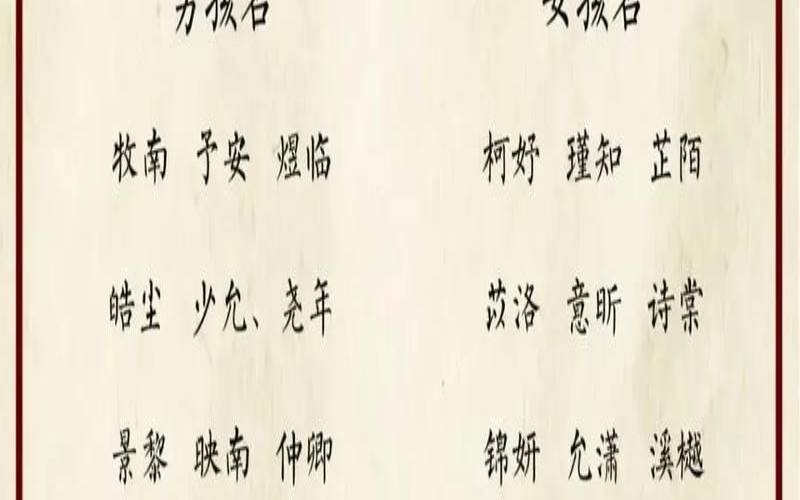 男孩名 女孩名
牧南 予安 煜临 柯妤 瑾知 芷陌
皓尘 少允、尧年 苡洛 意昕 诗棠
景黎 映南 仲卿 锦妍 允潇 溪樾